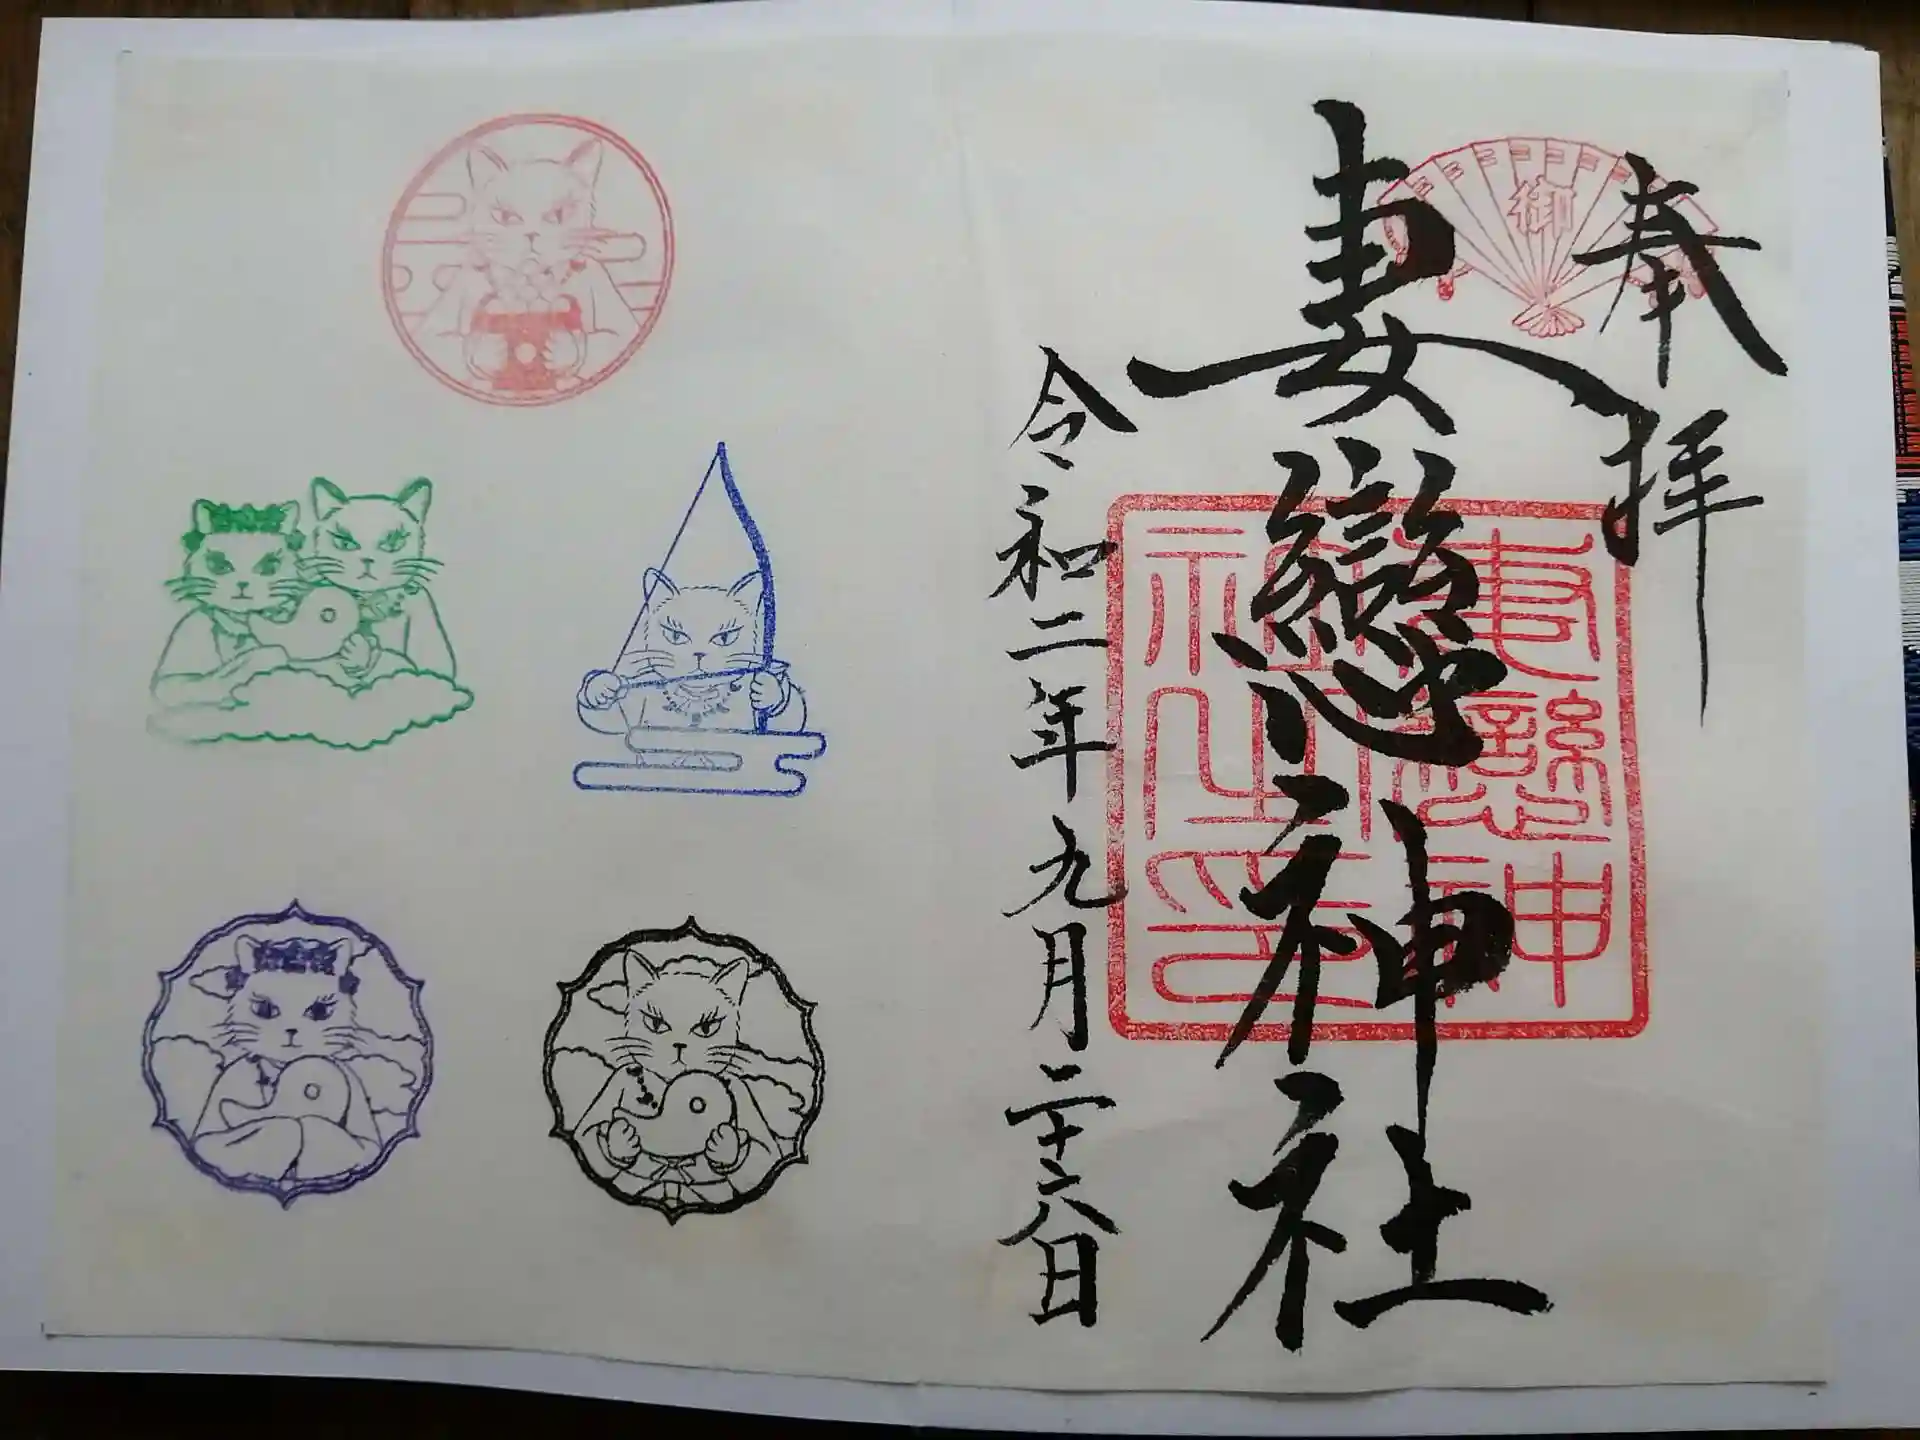 奉拝
御
妻戀神社
妻戀神社之印
令和二年九月二十六日